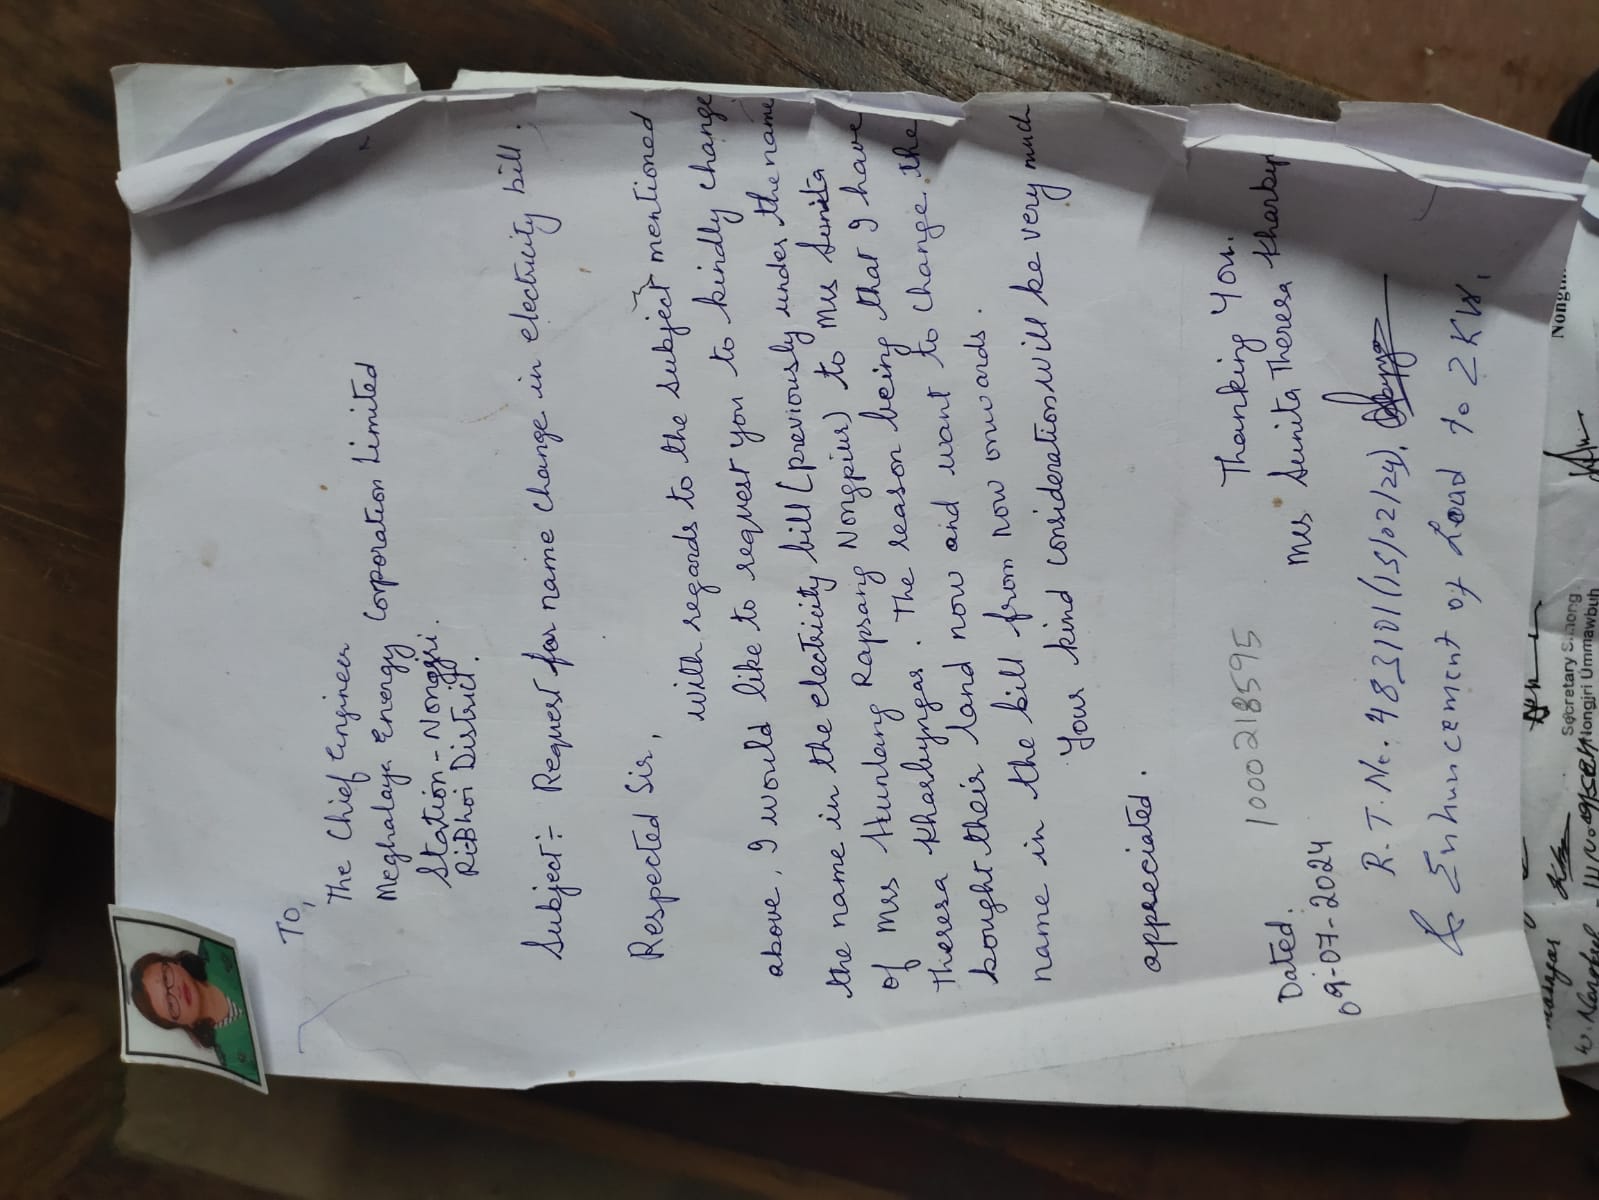 To,
The Chief Engineer
Meghalaya Energy Corporation Limited
Station - Nongjri.
RiBhoi District.
Subject :- Request for name change in electricity bill.
Respected Sir,
With regards to the subject mentioned
above, I would like to request you to kindly change
the name in the electricity bill (previously under the name
of Mrs Hunlang Rapsang Nongpiur) to Mrs Sunita
Theresa Kharbyngar. The reason being that I have
bought their land now and want to change the
name in the bill from now onwards.
Your kind consideration will be very much
appreciated.
Thanking You.
Mrs. Sunita Theresa Kharby
1000218595
Dated.
09-07-2024
R.T.No. 48_3101(15/02/24).
& Enhancement of Load to 2 KW.
Secretary
Nongjri Ummawbuh
Nong